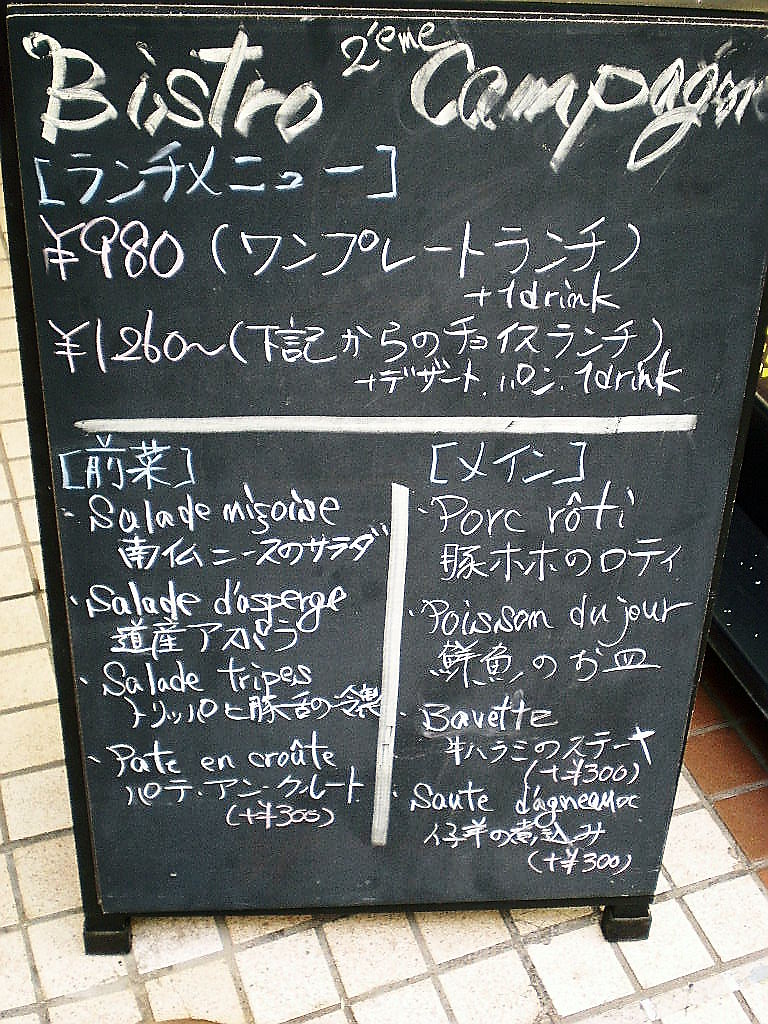 Bistro 2'eme Campagn
[ランチメニュー]
¥980 (ワンプレートランチ)
+1drink
¥1260~(下記からのチョイスランチ)
+デザート.パン.1drink
[前菜]
・Salade niçoise
南仏ニースのサラダ
・Salade d'asperge
道産アスパラ
・Salade tripes
トリッパと豚舌の冷製
・Pate en croûte
パテ・アン・クルート
(+¥300)
[メイン]
・Porc rôti
豚ホホのロティ
・Poisson du jour
鮮魚のお皿
・Bavette
牛ハラミのステーキ
(+¥300)
・Saute d'agneau
仔羊の煮込み
(+¥300)